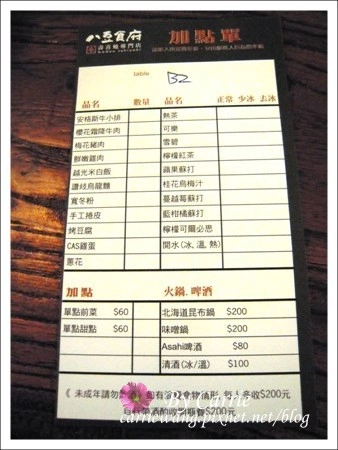 八豆食府
壽喜燒專門店
加點單
table B2
品名 數量 品名 正常 少冰 去冰
安格斯牛小排 熱茶
櫻花霜降牛肉 可樂
梅花豬肉 雪碧
鮮嫩雞肉 檸檬紅茶
越光米白飯 蘋果蘇打
讚岐烏龍麵 桂花烏梅汁
寬冬粉 蔓越莓蘇打
手工捲皮 藍柑橘蘇打
烤豆腐 檸檬可爾必思
CAS雞蛋 開水(冰、溫、熱)
蔥花
加點 火鍋.啤酒
單點前菜 $60 北海道昆布鍋 $200
單點甜點 $60 味噌鍋 $200
Asahi啤酒 $80
清酒(冰/溫) $100
《 未成年請勿 如有 食物情形 收$200元
自備帶酒酌收 $200元
By Carrie
carriewang.pixnet.net/blog